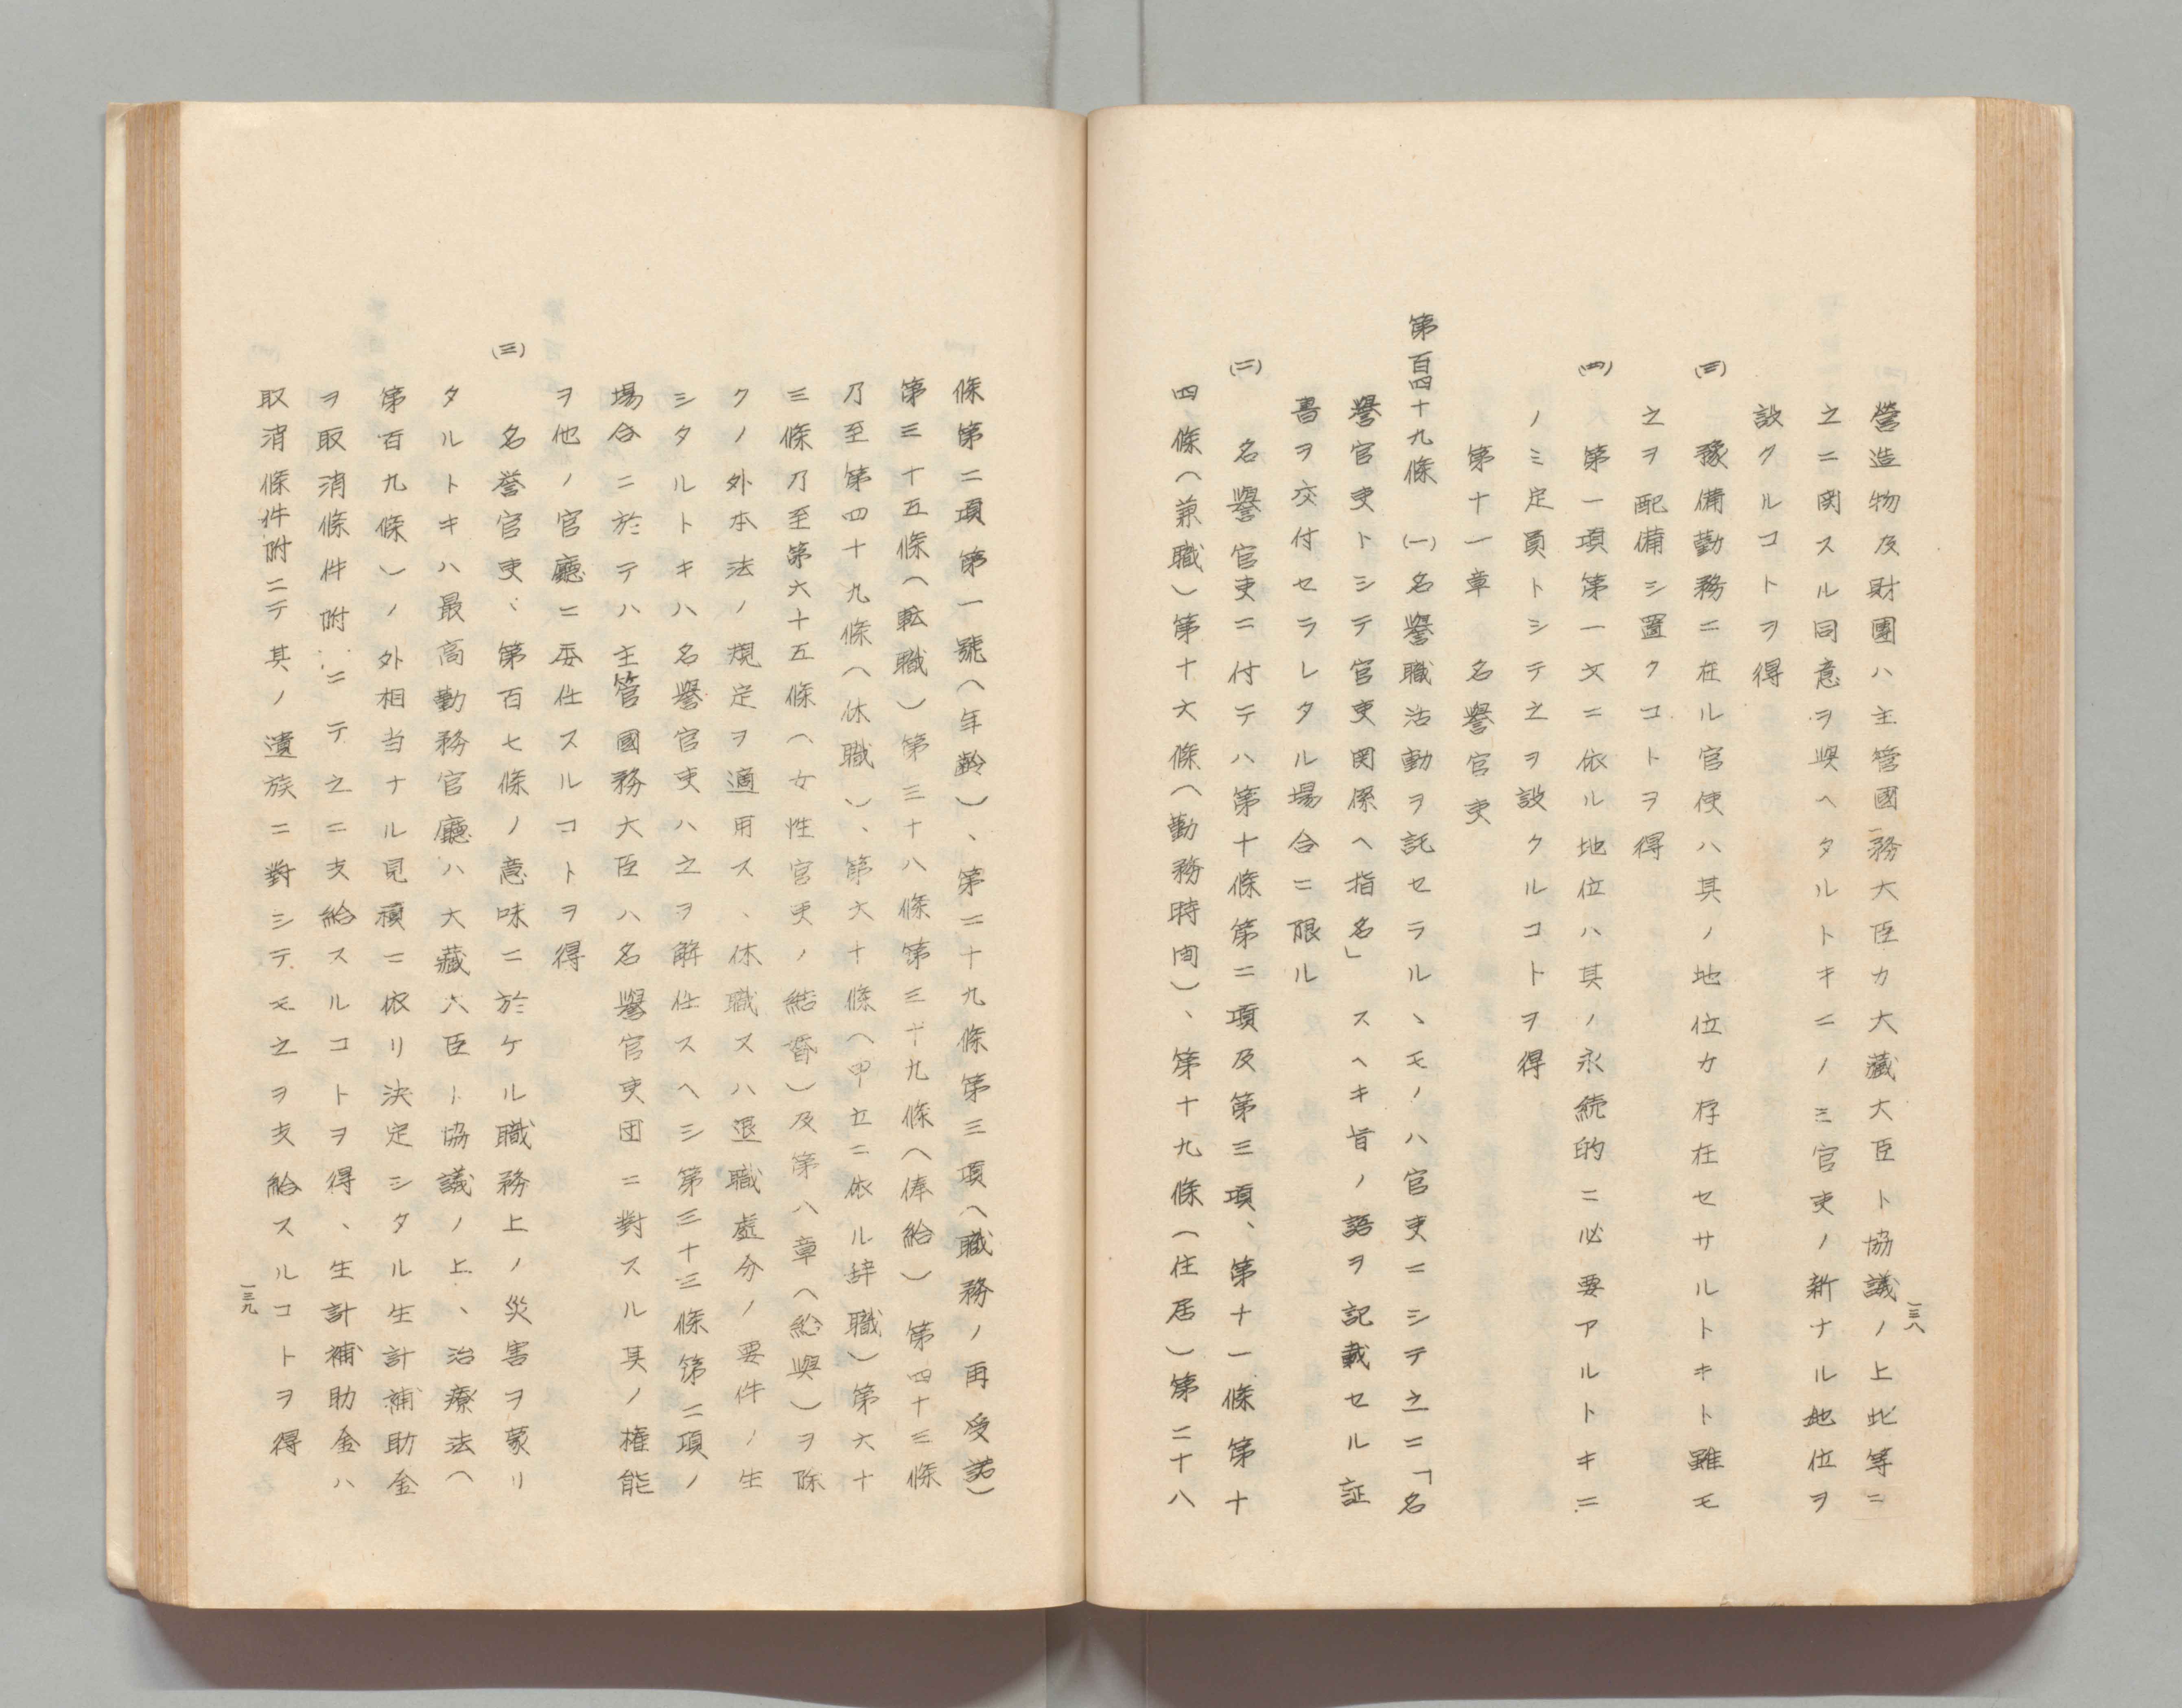 營造物及財團ハ主管國務大臣カ大藏大臣ト協議ノ上此等ニ
之ニ関スル同意ヲ與ヘタルトキニノミ官吏ノ新ナル地位ヲ
設クルコトヲ得
(三) 豫備勤務ニ在ル官使ハ其ノ地位カ存在セサルトキト雖モ
之ヲ配備シ置クコトヲ得
(四) 第一項第一文ニ依ル地位ハ其ノ永続的ニ必要アルトキニ
ノミ定員トシテ之ヲ設クルコトヲ得
第十一章 名譽官吏
第百四十九條 (一)名譽職活動ヲ託セラルヽモノハ官吏ニシテ之ニ「名
譽官吏トシテ官吏関係ヘ指名」スヘキ旨ノ語ヲ記載セル証
書ヲ交付セラレタル場合ニ限ル
(二) 名譽官吏ニ付テハ第十條第二項及第三項、第十一條第十
四條(兼職)第十六條(勤務時間)、第十九條(住居)第二十八
一三八
條第二項第一號(年齢)、第二十九條第三項(職務ノ再受諾)
第三十五條(転職)第三十八條第三十九條(俸給)第四十三條
乃至第四十九條(休職)、第六十條(甲立ニ依ル辞職)第六十
三條乃至第六十五條(女性官吏ノ結婚)及第八章(給與)ヲ除
クノ外本法ノ規定ヲ適用ス、休職又ハ退職處分ノ要件ノ生
シタルトキハ名譽官吏ハ之ヲ解任スヘシ第三十三條第二項ノ
場合ニ於テハ主管國務大臣ハ名譽官吏団ニ對スル其ノ権能
ヲ他ノ官廳ニ委任スルコトヲ得
(三) 名誉官吏、第百七條ノ意味ニ於ケル職務上ノ災害ヲ蒙リ
タルトキハ最高勤務官廳ハ大藏大臣ト協議ノ上、治療法(
第百九條)ノ外相当ナル見積ニ依リ決定シタル生計補助金
ヲ取消條件附ニテ之ニ支給スルコトヲ得、生計補助金ハ
取消條件附ニテ其ノ遺族ニ對シテモ之ヲ支給スルコトヲ得
一三九